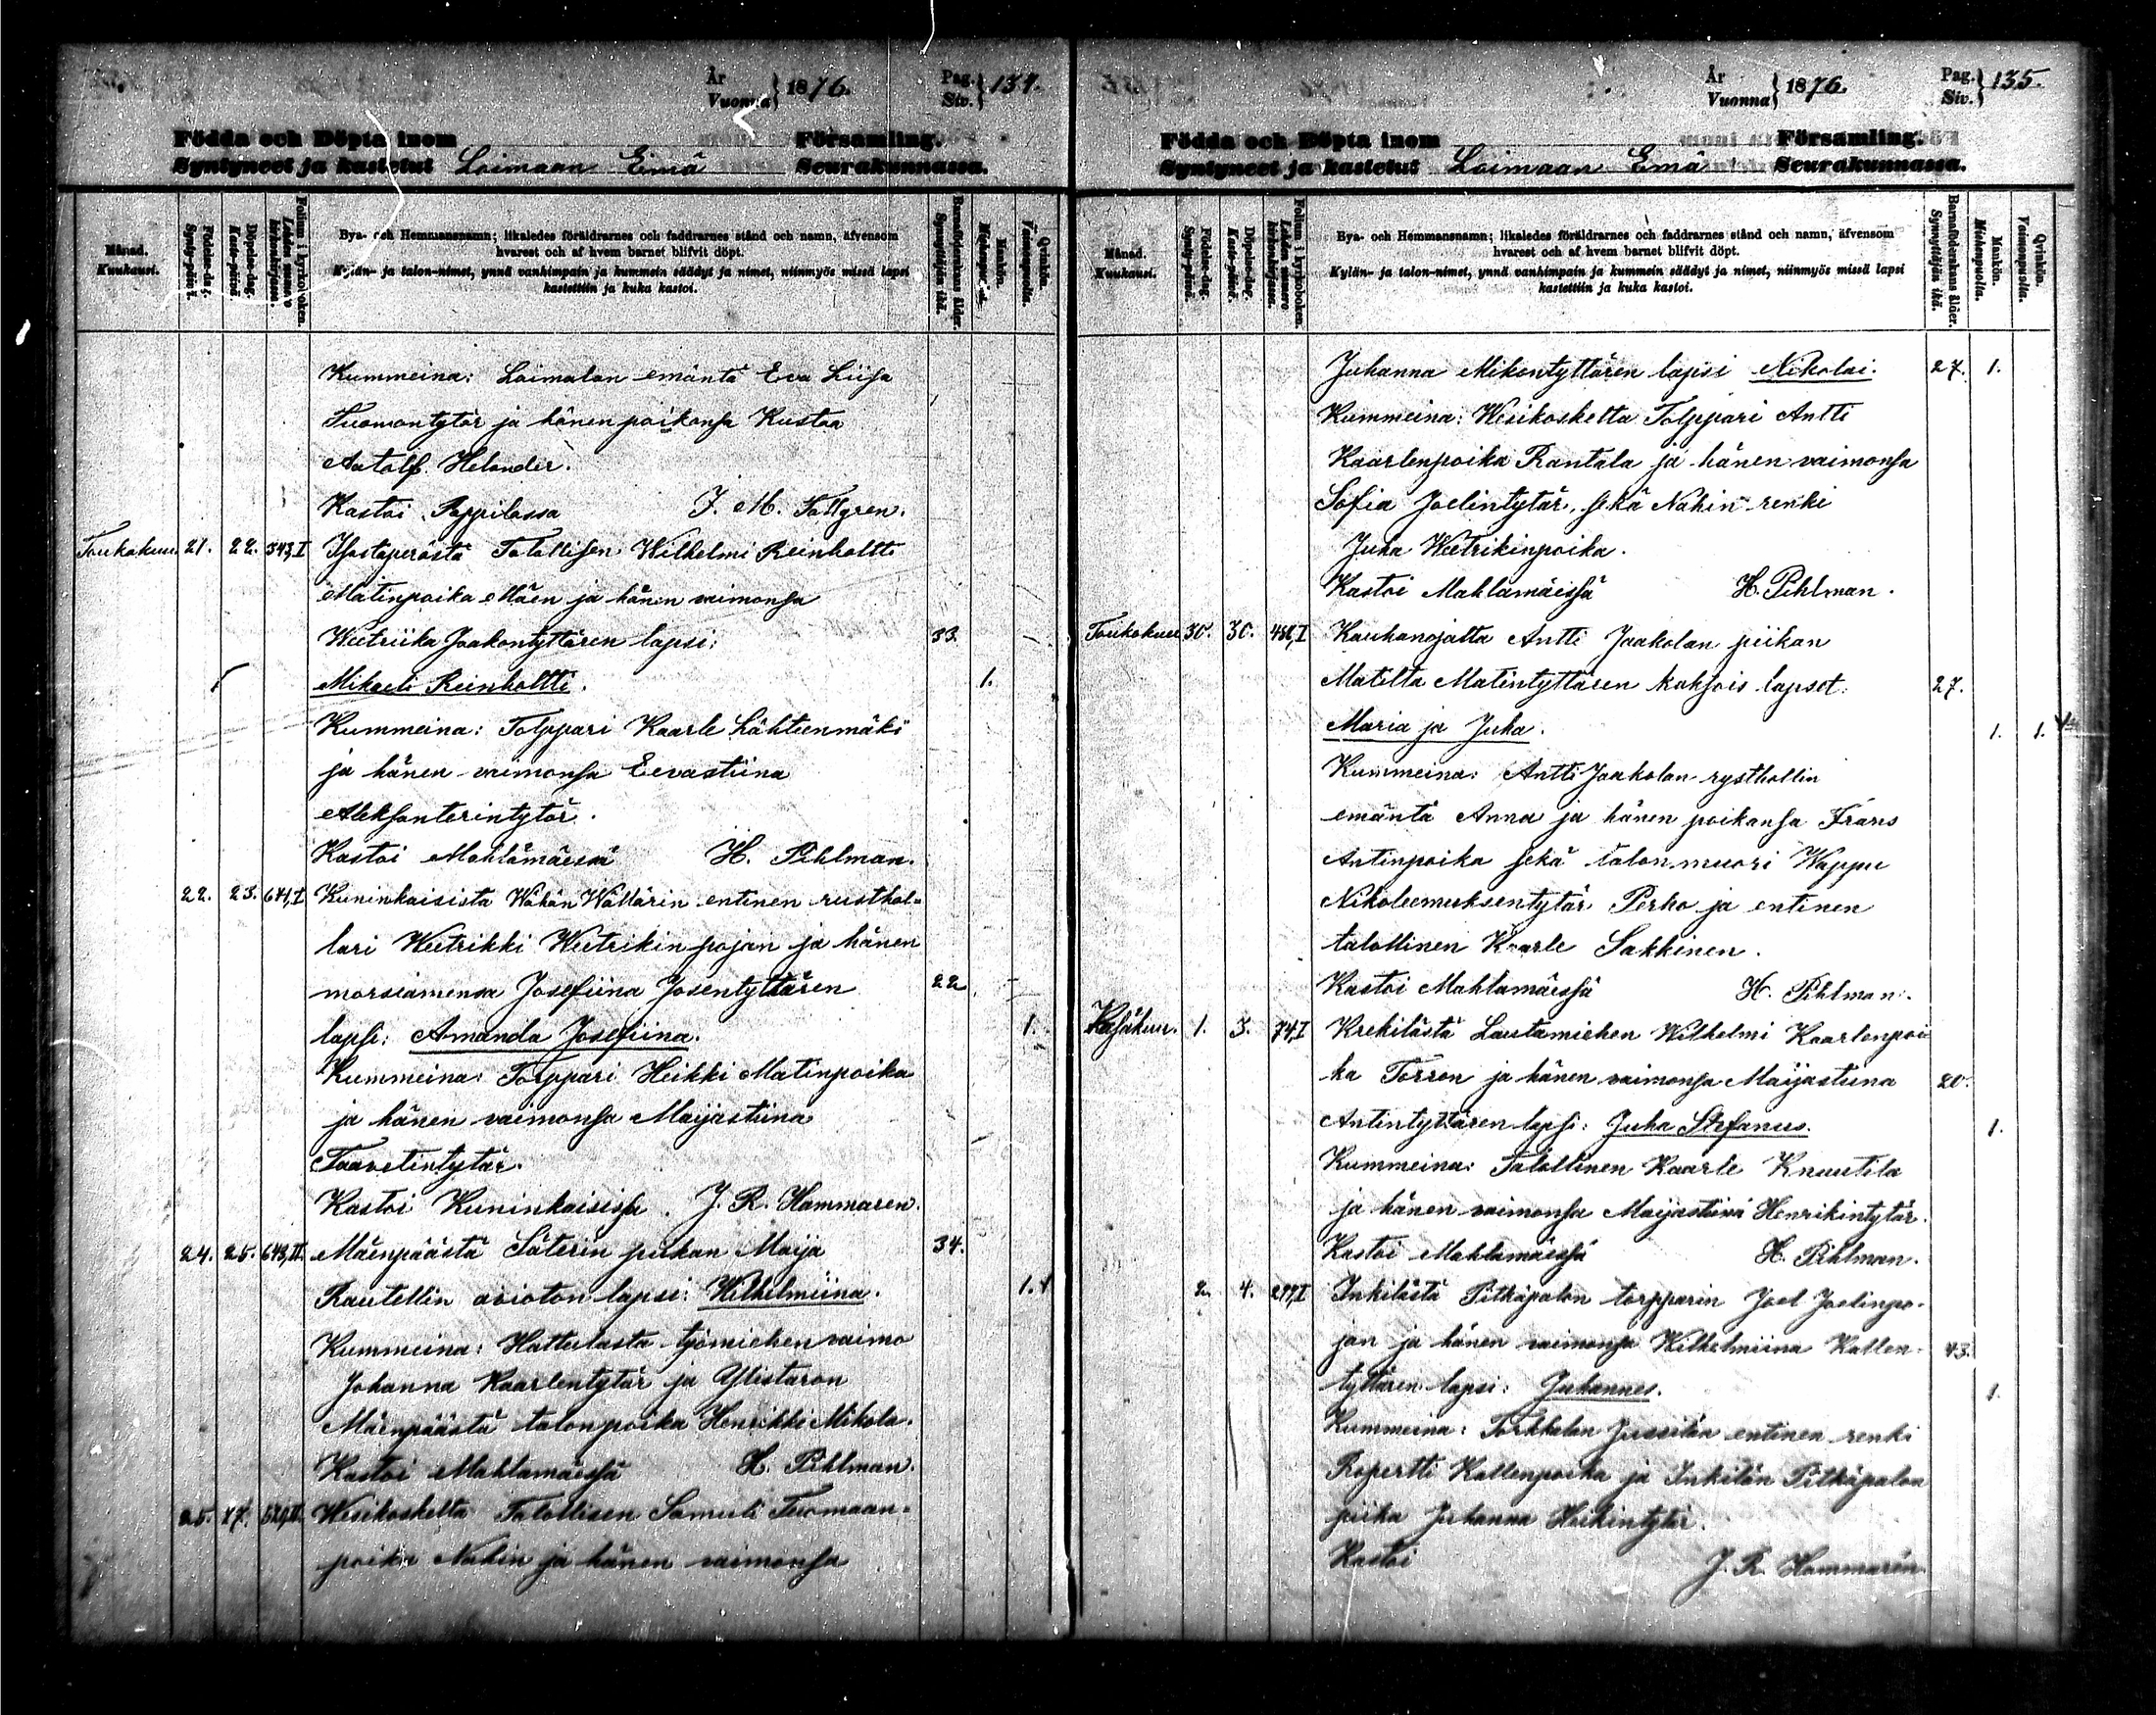 År
Vuonna } 1876.
Pag.
Siv. } 134.
Födda och Döpta inom Församling.
Syntyneet ja kastetut Loimaan Emä Seurakunnassa.
Månad.
Kuukausi.
Födelse-dag.
Synty-päivä.
Döpelse-dag.
Kaste-päivä.
Folium i kyrkoboken.
Lehden numero kirkonkirjassa.
Bya- och Hemmansnamn; likaledes föräldrarnes och faddrarnes stånd och namn, äfvensom
hvarest och af hvem barnet blifvit döpt.
Kylän- ja talon-nimet, ynnä vanhimpain ja kummein säädyt ja nimet, niinmyös missä lapsi
kastettiin ja kuka kastoi.
Barnaföderskans ålder.
Synnyttäjän ikä.
Mankön.
Miehenpuolia.
Qvinkön.
Vaimonpuolia.
Kummeina: Loimalan emäntä Eva Liisa
Tuomontytär ja hänen poikansa Kustaa
Aatolf Helander.
Kastoi Pappilassa J. M. Tallgren.
Toukokuu 21. 22. 343,I Ihastaperästä Talollisen Wilhelmi Reinholtti
Matinpoika Mäen ja hänen vaimonsa
Weetriika Jaakontyttären lapsi: 33.
Mikaeli Reinholtti. 1.
Kummeina: Torppari Kaarle Lähteenmäki
ja hänen vaimonsa Eevastiina
Aleksanterintytär.
Kastoi Mahlamäessä H. Pihlman.
22. 23. 671,I Kuninkaisista Wähän Wällärin entinen rusthol-
lari Weetrikki Weetrikin pojan ja hänen
morsiamensa Josefiina Josentyttären 22
lapsi: Amanda Josefiina. 1.
Kummeina: Torppari Heikki Matinpoika
ja hänen vaimonsa Maijastiina
Taavetintytär.
Kastoi Kuninkaisissa J. R. Hammaren.
24. 25. 643,II. Mäenpäästä Säterin piikan Maija 34.
Rautellin avioton lapsi: Wilhelmiina. 1.
Kummeina: Hattulasta työmiehen vaimo
Johanna Kaarlentytär ja Ylistaron
Mäenpäästä talonpoika Henrikki Mikola.
Kastoi Mahlamäessä H. Pihlman.
25. 27. Wesikoskelta Talollisen Samuli Tuomaan-
poika Nahin ja hänen vaimonsa
År
Vuonna } 1876.
Pag.
Siv. } 135.
Födda och Döpta inom Församling.
Syntyneet ja kastetut Loimaan Emä Seurakunnassa.
Månad.
Kuukausi.
Födelse-dag.
Synty-päivä.
Döpelse-dag.
Kaste-päivä.
Folium i kyrkoboken.
Lehden numero kirkonkirjassa.
Bya- och Hemmansnamn; likaledes föräldrarnes och faddrarnes stånd och namn, äfvensom
hvarest och af hvem barnet blifvit döpt.
Kylän- ja talon-nimet, ynnä vanhimpain ja kummein säädyt ja nimet, niinmyös missä lapsi
kastettiin ja kuka kastoi.
Barnaföderskans ålder.
Synnyttäjän ikä.
Mankön.
Miehenpuolia.
Qvinkön.
Vaimonpuolia.
Juhanna Mikontyttären lapsi Nikolai. 27. 1.
Kummeina: Wesikoskelta Torppari Antti
Kaarlenpoika Rantala ja hänen vaimonsa
Sofia Joelintytär, sekä Nahin renki
Juha Weetrikinpoika.
Kastoi Mahlamäessä H. Pihlman.
Toukokuu 30. 30. Kauhanojalta Antti Jaakolan piikan
Matilta Matintyttären kaksois lapset: 27.
Maria ja Juha. 1. 1.
Kummeina: Antti Jaakolan rysthollin
emäntä Anna ja hänen poikansa Frans
Antinpoika sekä talon muori Wappu
Nikoleemuksentytär Perho ja entinen
talollinen Kaarle Sakkinen.
Kastoi Mahlamäessä H. Pihlman.
Kesäkuu. 1. 3. 74,I Krekilästä Lautamiehen Wilhelmi Kaarlenpoi
ka Torron ja hänen vaimonsa Maijastiina 20.
Antintyttären lapsi: Juha Stefanus. 1.
Kummeina: Talollinen Kaarle Knuutila
ja hänen vaimonsa Maijastiina Henrikintytär.
Kastoi Mahlamäessä H. Pihlman.
2. 4. Inkilästä Pitkäpalon torpparin Joel Joelinpo-
jan ja hänen vaimonsa Wilhelmiina Kallen- 43.
tyttären lapsi: Juhannes. 1.
Kummeina: Torkkalan Jussilan entinen renki
Ropertti Kallenpoika ja Inkilän Pitkäpalon
piika Juhanna Heikintytär.
Kastoi J. R. Hammarén